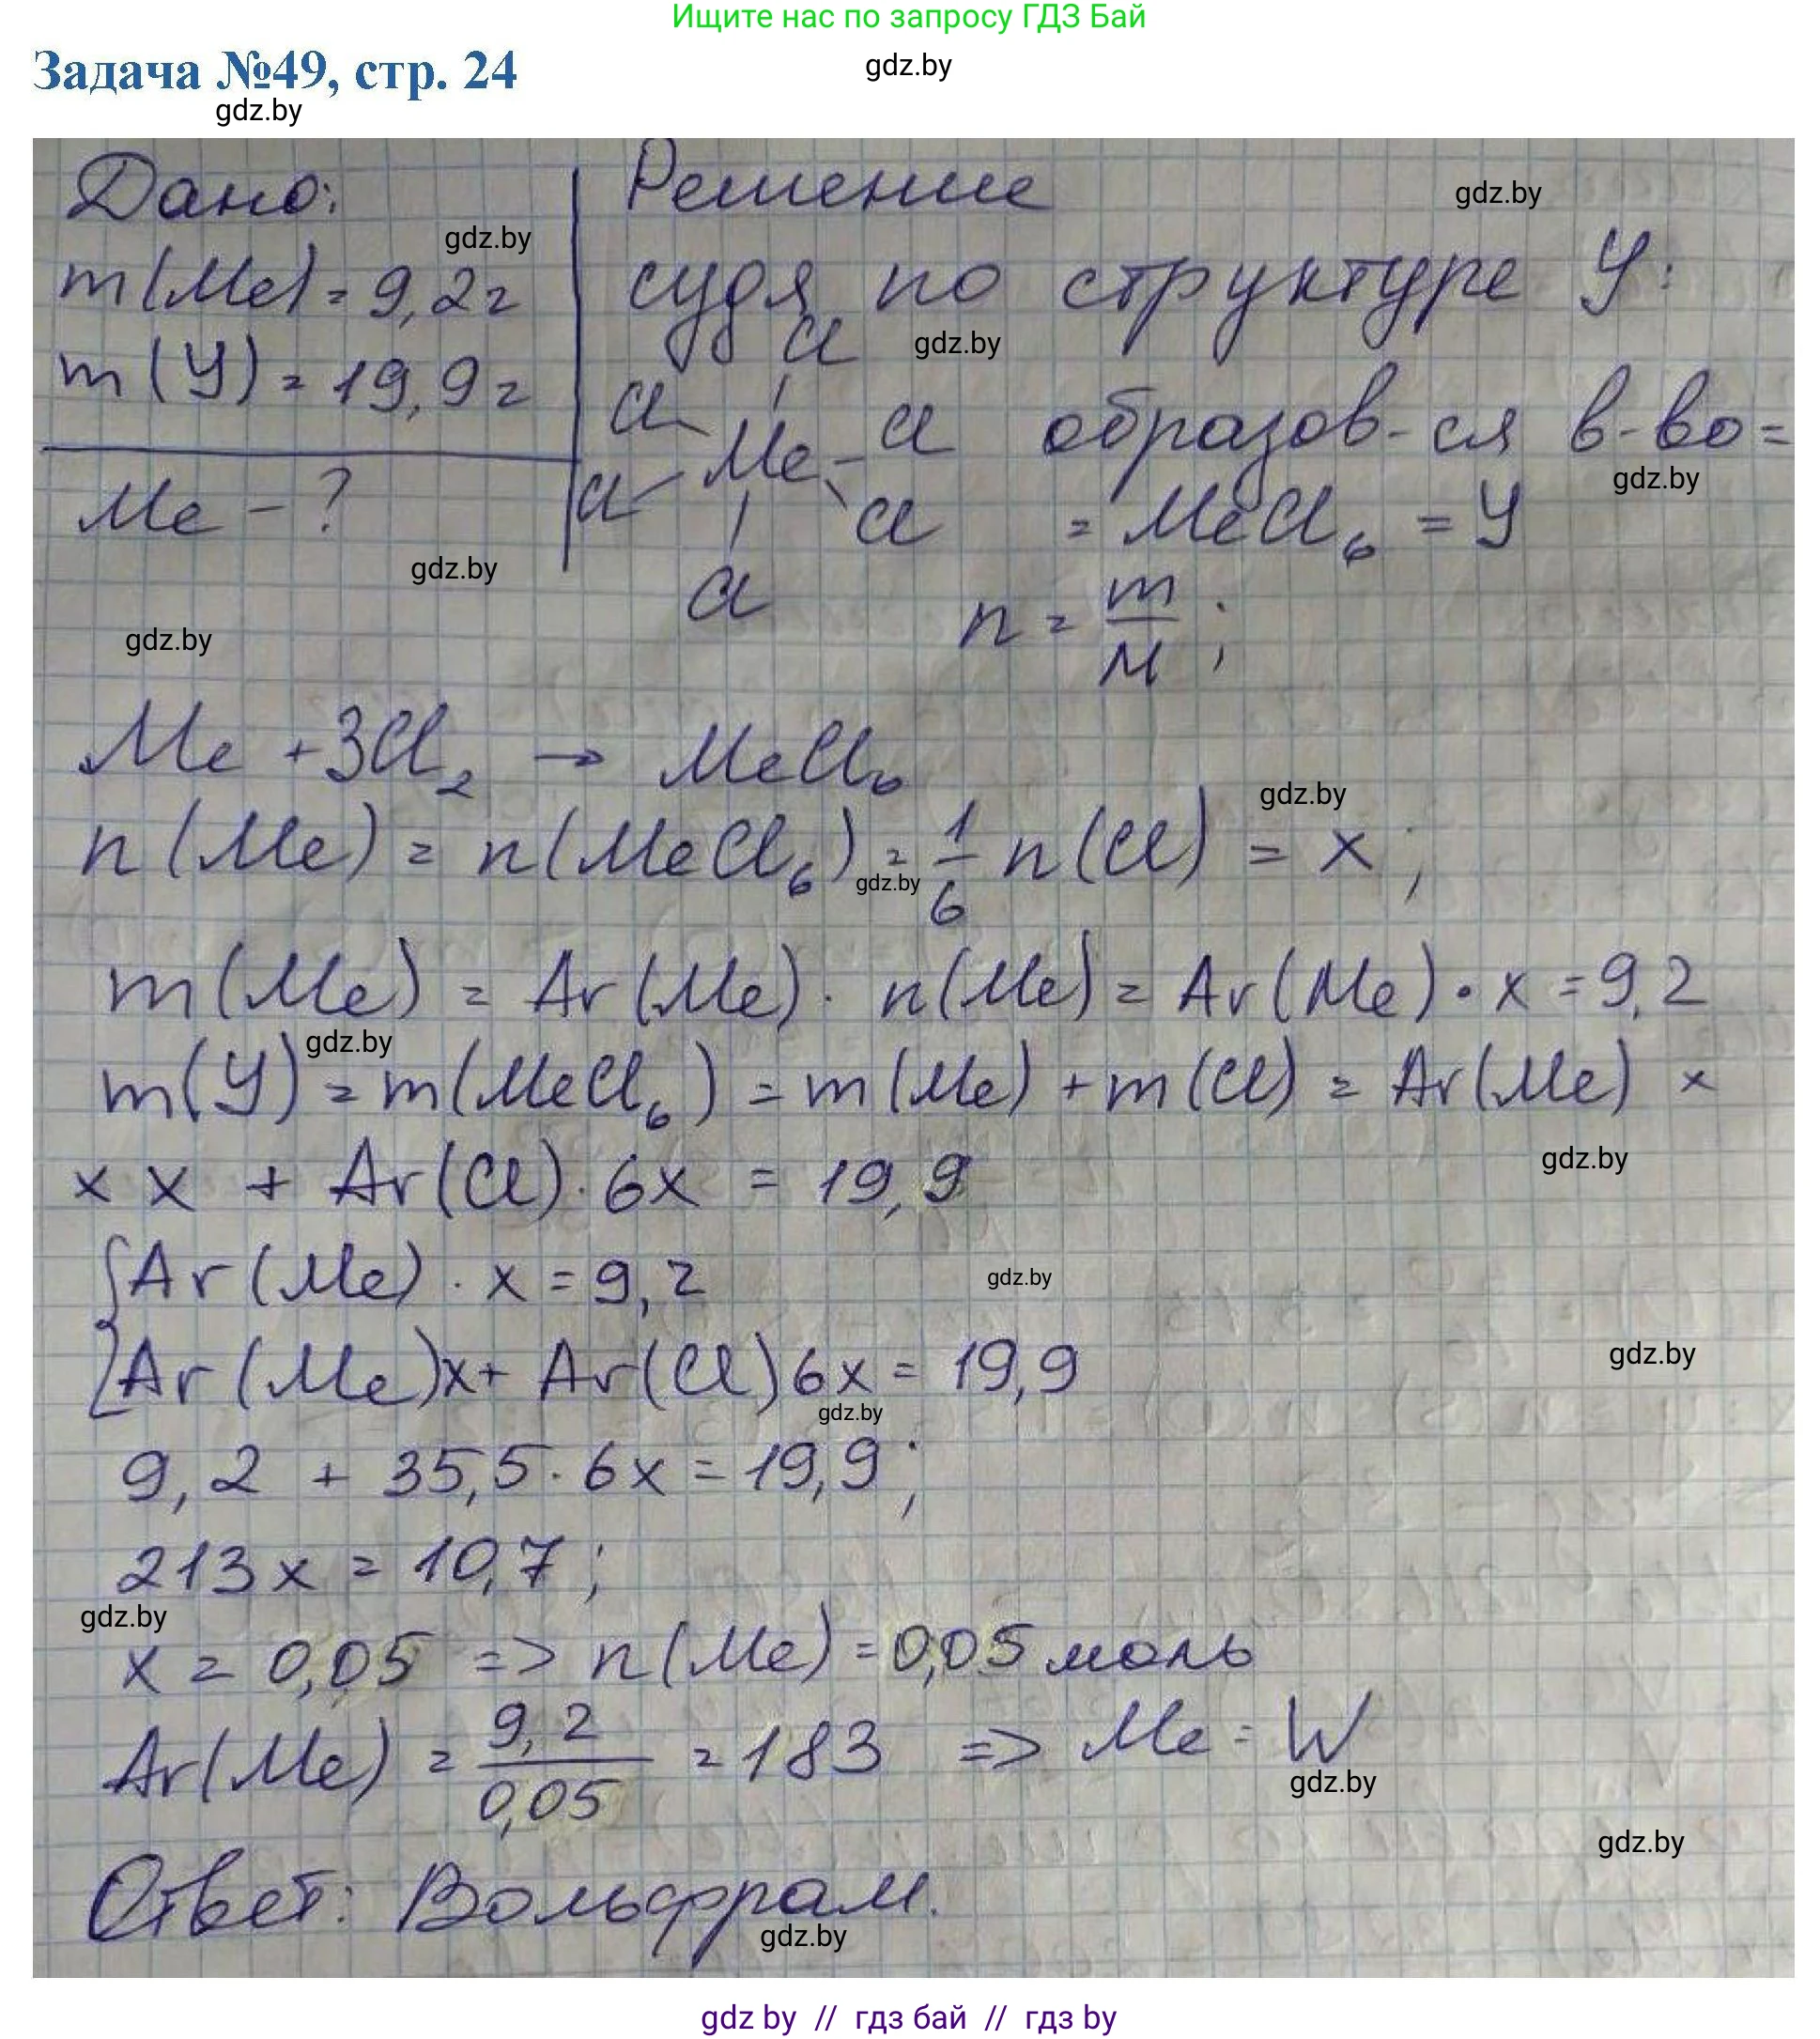 Ищите нас по запросу ГДЗ Бай
Задача №49, стр. 24
gdz.by
gdz.by
Дано:
Решение
gdz.by
gdz.by
m(Me) = 9,2г
судя по структуре У:
m(У) = 19,9г
Cl
gdz.by
Cl
Me - Cl
образов-ся в-во =
gdz.by
Me - ?
Cl
Cl
= MeCl₆ = У
gdz.by
Cl
n = m/M ;
gdz.by
Me + 3Cl₂ → MeCl₆
gdz.by
n(Me) = n(MeCl₆) = 1/6 n(Cl) = x ;
gdz.by
m(Me) = Ar(Me) · n(Me) = Ar(Me) · x = 9,2
gdz.by
m(У) = m(MeCl₆) = m(Me) + m(Cl) = Ar(Me) ×
gdz.by
× x + Ar(Cl) · 6x = 19,9
{Ar(Me) · x = 9,2
gdz.by
Ar(Me)x + Ar(Cl)6x = 19,9
gdz.by
gdz.by
9,2 + 35,5 · 6x = 19,9 ;
213x = 10,7 ;
gdz.by
x = 0,05 => n(Me) = 0,05 моль
Ar(Me) = 9,2/0,05 = 183 => Me = W
gdz.by
gdz.by
Ответ: Вольфрам.
gdz.by
gdz by // гдз бай // гдз by